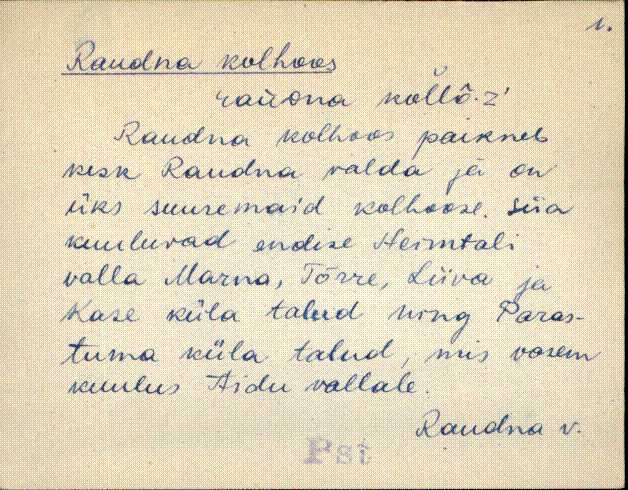 1.
Raudna kolhoos
Raudna kolhoos paikneb
kesk Raudna valda ja on
üks suuremaid kolhoose. Siia
kuuluvad endise Heimtali
valla Marna, Tõrre, Liiva ja
Kase küla talud ning Paras-
tuma küla talud, mis varem
kuulus Aidu vallale.
Raudna v.
Pst